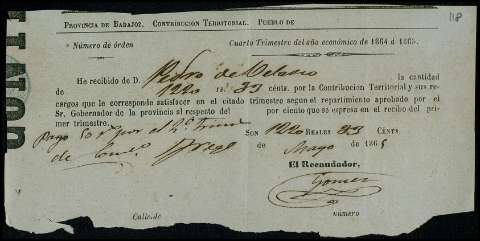 118
PROVINCIA DE BADAJOZ. CONTRIBUCION TERRITORIAL. PUEBLO DE
Número de órden Cuarto Trimestre del año económico de 1864 á 1865.
He recibido de D. Pedro de Velasco la cantidad
de 1220 rs. 33 cénts. por la Contribucion Territorial y sus re-
cargos que le corresponde satisfacer en el citado trimestre segun el repartimiento aprobado por el
Sr. Gobernador de la provincia al respecto del por ciento que se espresa en el recibo del pri-
mer trimestre.
Pago
SON 1220 REALES 33 CÉNTS.
de
de Mayo de 1865
El Recaudador,
Gomez
Calle de número